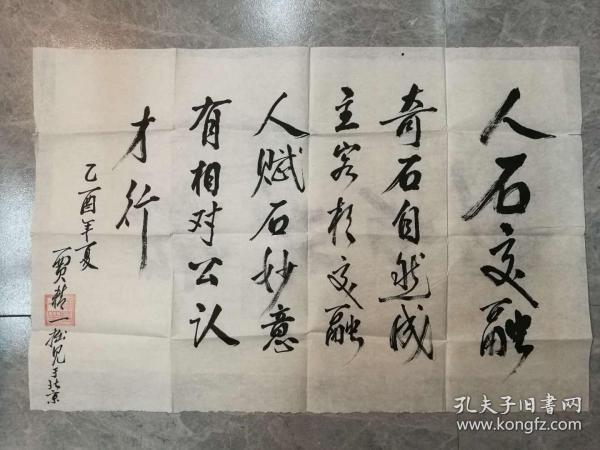 人石交融
奇石自然成
主客相交融
人赋石妙意
有相对公认
才行
乙酉年夏
贾精一拙见于北京
孔夫子旧书网
www.kongfz.com